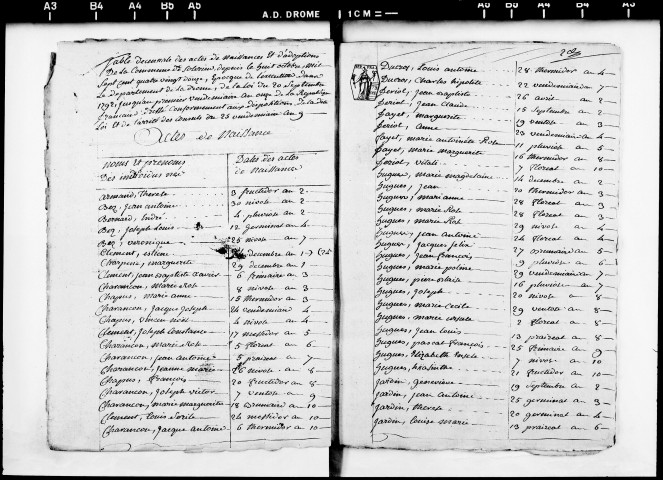 A3 B4 A4 B5 A5 A.D. DROME 1 CM A5 B5 A4 B4 A3
Table decennale des actes de Naissances et d'adoptions
De la Commune de depuis le huit octobre mil
Sept cent quatre vingt douze, Epoque de l'execution dans
le departement de la drome, de la loi du 20 Septembre
1792, jusqu'au premier vendemiaire an onze de la Republique
francaise, dressée conformement aux dispositions de la
Loi et de l'arreté des consuls du 25 vendemiaire an 9
Actes de Naissance
Noms et prenoms
Des individus nés
Dates des actes
de Naissance
armand, Therese 3 fructidor an 2
Bez, jean antoine 30 nivose an 2
Bernard, André 4 pluviose an 2
Bez, joseph Louis 12 germinal an 4
Bez, veronique 25 nivose an 7
Clement, estienne decembre an 1
Charpene, marguerite 29 decembre an 1
Clement jean Baptiste Xavier 6 frimaire an 3
Charancon, marie rose 8 nivose an 3
Chapus, marie anne 15 thermidor an 3
Charancon, jacque joseph 24 vendemiaire 4
Chapus, vincent noel 4 nivose an 4
Clement, joseph Constance 17 messidor an 5
Charancon, marie rose 5 floreal an 6
Charancon, jean antoine 5 prairial an 7
Charancon, jeanne marie 26 nivose an 8
Chapus, francois 20 fructidor an 8
Charancon, joseph victor 7 ventose an 9
Charancon, marie marguerite 18 Brumaire an 10
Clement, Louis 24 messidor an 10
Charancon, jacque antoine 6 thermidor an 10
Ducros, Louis antoine 28 thermidor an 4
Ducros, Charles hipolite 22 vendemiaire an 7
feriol, jean baptiste 26 avril an 2
feriol, jean claude 15 septembre an 2
fayet, marguerite 19 ventose an 3
feriol, anne 23 vendemiaire an 4
fayet, marie antoinette Rose 11 pluviose an 5
fayet, marie marguerite 16 thermidor an 8
feriol, vitali 7 floreal an 10
hugues, marie magdelaine 14 decembre an 2
hugues, jean 20 thermidor an 3
hugues, marianne 28 floreal an 3
hugues, marie Rose 28 floreal an 3
hugues, marie 29 nivose an 4
hugues, jean antoine 24 floreal an 4
hugues, jacques felix 27 an 5
hugues, marie 9 pluviose an 6
hugues, 29 vendemiaire an 7
hugues, joseph 16 pluviose an 7
hugues, marie cecile 20 nivose an 8
hugues, marie ursule 29 ventose an 8
hugues, jean Louis 2 floreal an 8
hugues, pascal francois 13 prairial an 8
hugues, Elizabeth Ursule 25 frimaire an 9
hugues, 7 nivose an 10
jardin, genevieve 21 fructidor an 10
jardin, jean antoine 19 septembre an 2
jardin, therese 25 germinal an 3
jardin, louise marie 20 germinal an 4
13 prairial an 6